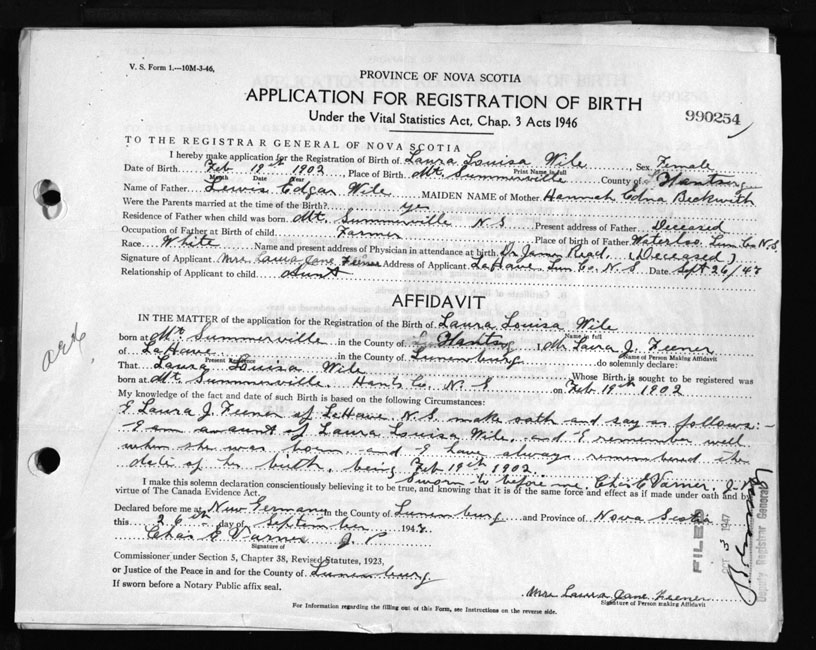 V. S. Form 1.—10M-3-46.
PROVINCE OF NOVA SCOTIA
APPLICATION FOR REGISTRATION OF BIRTH
990254
Under the Vital Statistics Act, Chap. 3 Acts 1946
TO THE REGISTRAR GENERAL OF NOVA SCOTIA
I hereby make application for the Registration of Birth of Laura Louisa Wile Sex Female
Print Name in full
Date of Birth Feb 19th 1902 Place of Birth Mt. Summerville County of Hants
Month Date Year
Name of Father Lewis Edgar Wile MAIDEN NAME of Mother Hannah Edna Beckwith
Were the Parents married at the time of the Birth? yes
Residence of Father when child was born Mt. Summerville N S Present address of Father Deceased
Occupation of Father at Birth of child Farmer Place of birth of Father Waterloo Lun Co N.S.
Race White Name and present address of Physician in attendance at birth Dr James Read (Deceased)
Signature of Applicant Mrs Laura Jane Feener Address of Applicant LaHave Lun Co. N. S. Date Sept 26/47
Relationship of Applicant to child Aunt
AFFIDAVIT
IN THE MATTER of the application for the Registration of the Birth of Laura Louisa Wile
Name in full
born at Mt Summerville in the County of Hants I Laura J. Feener
Name of Person Making Affidavit
of LaHave in the County of Lunenburg do solemnly declare:
Present Residence
That Laura Louisa Wile Whose Birth is sought to be registered was
born at Mt Summerville Hants Co. N. S on Feb 19th 1902
My knowledge of the fact and date of such Birth is based on the following Circumstances:
I Laura J. Feener of LaHave N.S. make oath and say as follows:-
I am an aunt of Laura Louisa Wile, and I remember well
when she was born and I have always remembered the
date of her birth, being Feb 19th 1902
Sworn to before me, Chas E Varner, J.P.
I make this solemn declaration conscientiously believing it to be true, and knowing that it is of the same force and effect as if made under oath and by
virtue of The Canada Evidence Act.
Declared before me at New Germany in the County of Lunenburg and Province of Nova Scotia
this 26th day of September 1947
Chas E Varner J. P
Signature of
Commissioner under Section 5, Chapter 38, Revised Statutes, 1923,
or Justice of the Peace in and for the County of Lunenburg
If sworn before a Notary Public affix seal.
Mrs Laura Jane Feener
Signature of Person making Affidavit
For Information regarding the filling out of this Form, see Instructions on the reverse side.
FILED
OCT 3 1947
Deputy Registrar General